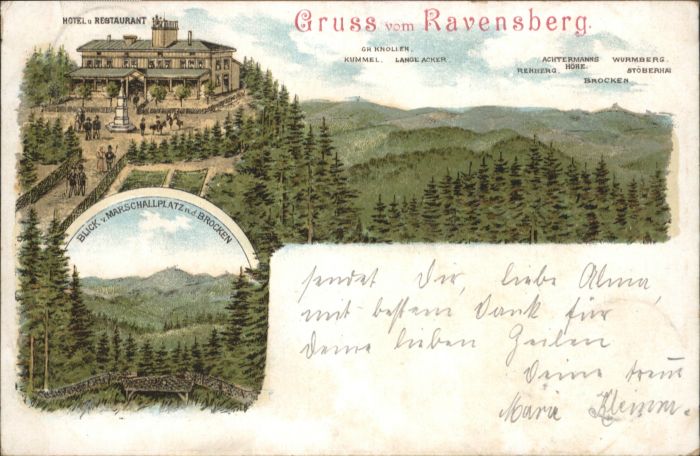 HOTEL u RESTAURANT
Gruss vom Ravensberg.
GR KNOLLEN.
KUMMEL. LANGE ACKER.
ACHTERMANNS HÖHE. WURMBERG.
REHBERG. STÖBERHAI
BROCKEN
BLICK v. MARSCHALLPLATZ n. d. BROCKEN
sendet Dir, liebe Alma,
mit bestem Dank für
Deine lieben Zeilen
Deine treue
Marie